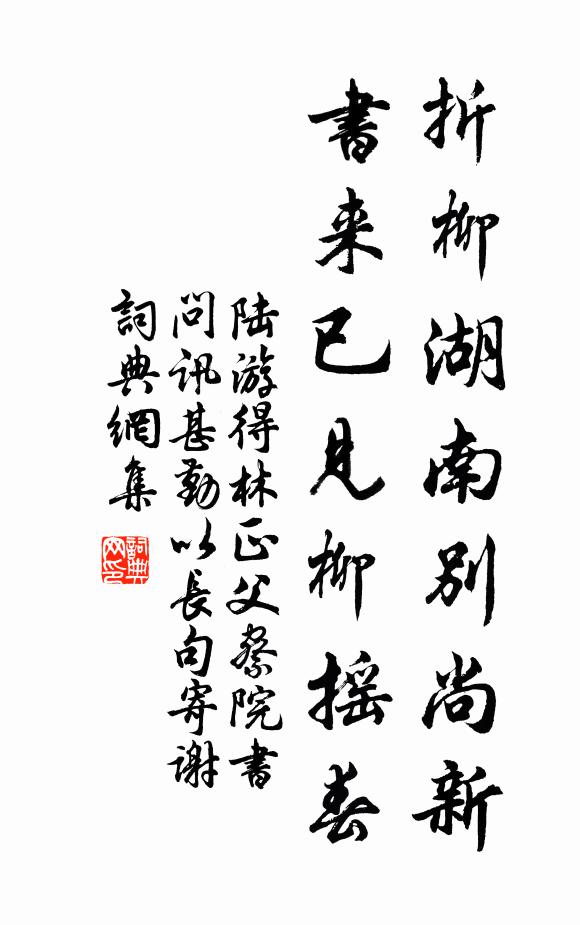 折柳湖南别尚新
書来已見柳摇春
陆游得林正父察院書
問訊甚勤以長句寄謝
詞典網集
詞典网印